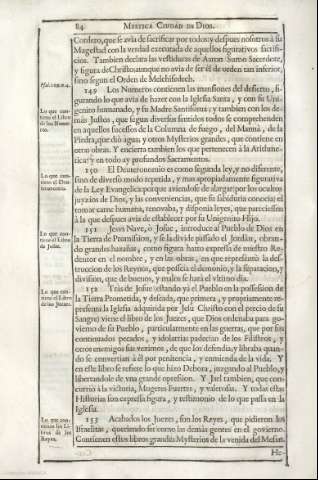 84 MYSTICA CIUDAD DE DIOS.
Cordero, que se avia de sacrificar por todos: y despues nosotros à su
Magestad con la verdad executada de aquellos figurativos sacrifi-
cios. Tambien declara las vestiduras de Aaron Sumo Sacerdote,
y figura de Christo: aunque no avia de ser él de orden tan inferior,
sino segun el Orden de Melchisedech.
Psal. 109. v. 4.
149 Los Numeros contienen las mansiones del desierto, fi-
gurando lo que avia de hazer con la Iglesia Santa, y con su Uni-
genito humanado, y su Madre Santissima; y tambien con los de-
mas Justos, que segun diversos sentidos todo se comprehenden
en aquellos sucessos de la Columna de fuego, del Manná, de la
Piedra, que diò agua; y otros Mysterios grandes, que contiene en
otras obras. Y encierra tambien los que pertenecen à la Arithme-
tica: y en todo ay profundos Sacramentos.
Lo que con-
tiene el Libro
de los Nume-
ros.
150 El Deuteronomio es como segunda ley, y no diferente,
sino de diverso modo repetida, y mas apropiadamente figurativa
de la Ley Evangelica: porque aviendose de alargar por los ocultos
juyzios de Dios, y las conveniencias, que su sabiduria conocia) el
tomar carne humana, renovaba, y disponia leyes, que pareciessen
à la que despues avia de establecer por su Unigenito Hijo.
Lo que con-
tiene el Deu-
teronomio.
151 Jesus Nave, ò Josue, introduce al Pueblo de Dios en
la Tierra de Promission, y se la divide passado el Jordan, obran-
do grandes hazañas, como figura harto expressa de nuestro Re-
demtor en el nombre, y en las obras, en que representò la des-
truccion de los Reynos, que posseia el demonio, y la separacion, y
division, que de buenos, y malos se harà el ultimo dia.
Lo que con-
tiene el Libro
de Josue.
152 Tras de Josue (estando yà el Pueblo en la possession de
la Tierra Prometida, y deseada, que primera, y propriamente re-
presenta la Iglesia adquirida por Jesu Christo con el precio de su
Sangre) viene el libro de los Juezes, que Dios ordenaba para go-
vierno de su Pueblo, particularmente en las guerras, que por sus
continuados pecados, y idolatrias padecian de los Filisteos, y
otros enemigos sus vezinos, de que los defendia, y libraba quan-
do se convertian à él por penitencia, y enmienda de la vida. Y
en este libro se refiere lo que hizo Debora, juzgando al Pueblo, y
libertandole de una grande opression. Y Jael tambien, que con-
currió à la victoria, Mugeres fuertes, y valerosas. Y todas estas
Historias son expressa figura, y testimonio de lo que passa en la
Iglesia.
Lo que con-
tiene el Libro
de los Juezes.
153 Acabados los Juezes, son los Reyes, que pidieron los
Israelitas, queriendo ser como las demàs gentes en el govierno.
Contienen estos libros grandes Mysterios de la venida del Mesias.
Lo que con-
tienen los Li-
bros de los
Reyes.
He-